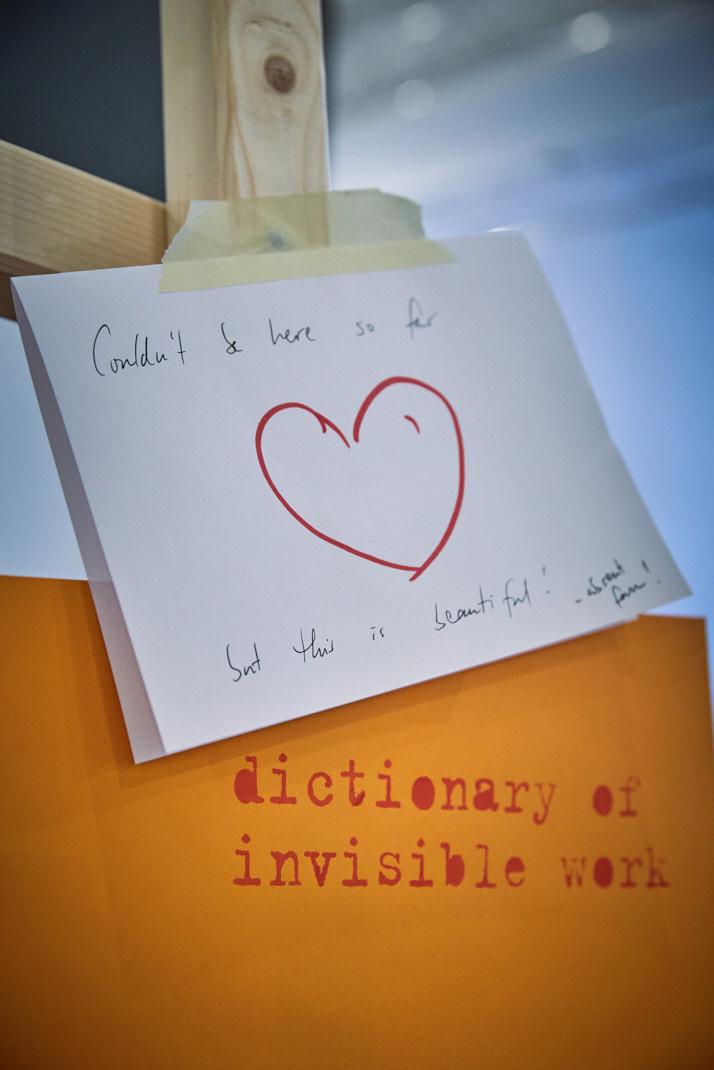 Couldn't be here so far
but this is beautiful!
- absent
fan!
dictionary of
invisible work